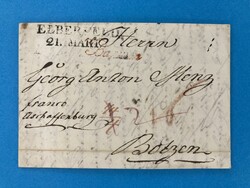 ELBERFELD
21. MÄRZ
Herrn
Georg Anton Menz
franco
Aschaffenburg
Botzen